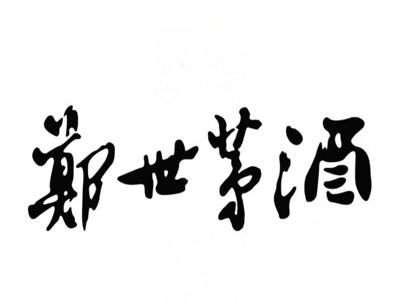 鄭世茅酒